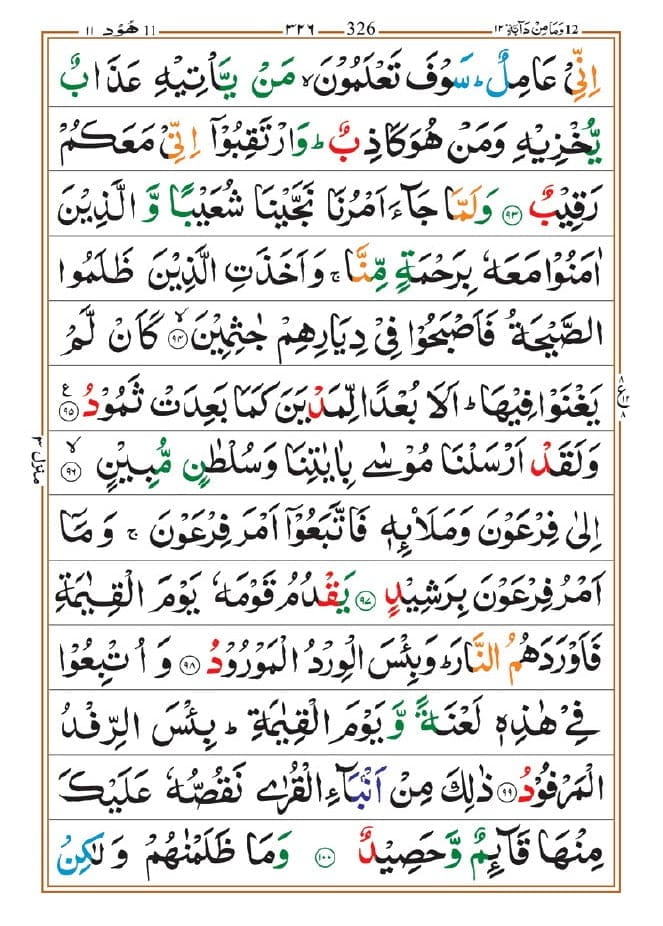 12 وَمَا مِنْ دَآبَّةٍ ١٢ 326 ٣٢٦ 11 هُوْد ١١
اِنِّیْ عَامِلٌ ؕ سَوْفَ تَعْلَمُوْنَ ۙ مَنْ یَّاْتِیْهِ عَذَابٌ
یُّخْزِیْهِ وَمَنْ هُوَ كَاذِبٌ ؕ وَارْتَقِبُوْۤا اِنِّیْ مَعَكُمْ
رَقِیْبٌ ﴿۹۳﴾ وَلَمَّا جَآءَ اَمْرُنَا نَجَّیْنَا شُعَیْبًا وَّ الَّذِیْنَ
اٰمَنُوْا مَعَهٗ بِرَحْمَةٍ مِّنَّا ۚ وَاَخَذَتِ الَّذِیْنَ ظَلَمُوا
الصَّیْحَةُ فَاَصْبَحُوْا فِیْ دِیَارِهِمْ جٰثِمِیْنَ ﴿ۙ۹۴﴾ كَاَنْ لَّمْ
یَغْنَوْا فِیْهَا ؕ اَلَا بُعْدًا لِّمَدْیَنَ كَمَا بَعِدَتْ ثَمُوْدُ ﴿۹۵﴾ ع
ع ٨ ٨
وَلَقَدْ اَرْسَلْنَا مُوْسٰی بِاٰیٰتِنَا وَسُلْطٰنٍ مُّبِیْنٍ ﴿ۙ۹۶﴾
منزل ٣
اِلٰی فِرْعَوْنَ وَمَلَاۡىِٕهٖ فَاتَّبَعُوْۤا اَمْرَ فِرْعَوْنَ ۚ وَمَاۤ
اَمْرُ فِرْعَوْنَ بِرَشِیْدٍ ﴿۹۷﴾ یَقْدُمُ قَوْمَهٗ یَوْمَ الْقِیٰمَةِ
فَاَوْرَدَهُمُ النَّارَ ؕ وَبِئْسَ الْوِرْدُ الْمَوْرُوْدُ ﴿۹۸﴾ وَ اُتْبِعُوْا
فِیْ هٰذِهٖ لَعْنَةً وَّ یَوْمَ الْقِیٰمَةِ ؕ بِئْسَ الرِّفْدُ
الْمَرْفُوْدُ ﴿۹۹﴾ ذٰلِكَ مِنْ اَنْۢبَآءِ الْقُرٰی نَقُصُّهٗ عَلَیْكَ
مِنْهَا قَآئِمٌ وَّ حَصِیْدٌ ﴿۱۰۰﴾ وَمَا ظَلَمْنٰهُمْ وَ لٰكِنْ